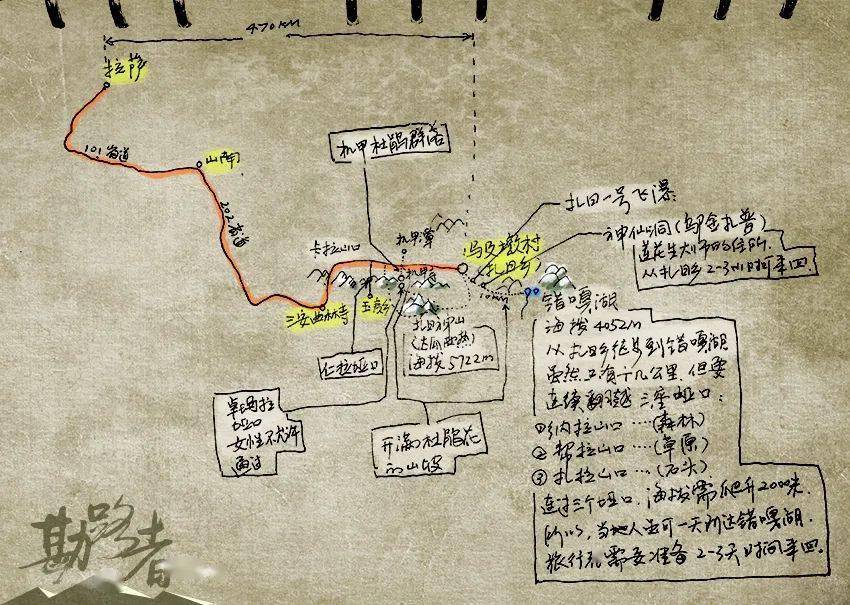 470KM
拉萨
101省道
山南
202省道
机甲杜鹃群落
卡拉山口
三安曲林寺
玉麦乡
扎日乡
扎日一号飞瀑
神仙洞(乌金扎普)
莲花生大师的住所.
从扎日乡2-3小时来回.
10KM
扎日神山
海拔5722m
仁拉垭口
卓玛拉
垭口
女性不允许
通过
开满杜鹃花
的山坡
错嘎湖
海拔4052m
从扎日乡徒步到错嘎湖
虽然只有十几公里.但要
连续翻越三座垭口:
①纳拉山口…(森林)
②帮拉山口…(草原)
③扎拉山口…(石头)
连过三个垭口,海拔需爬升2000米.
所以,当地人虽可一天到达错嘎湖.
旅行者需要准备2-3天时间来回.
勘路者